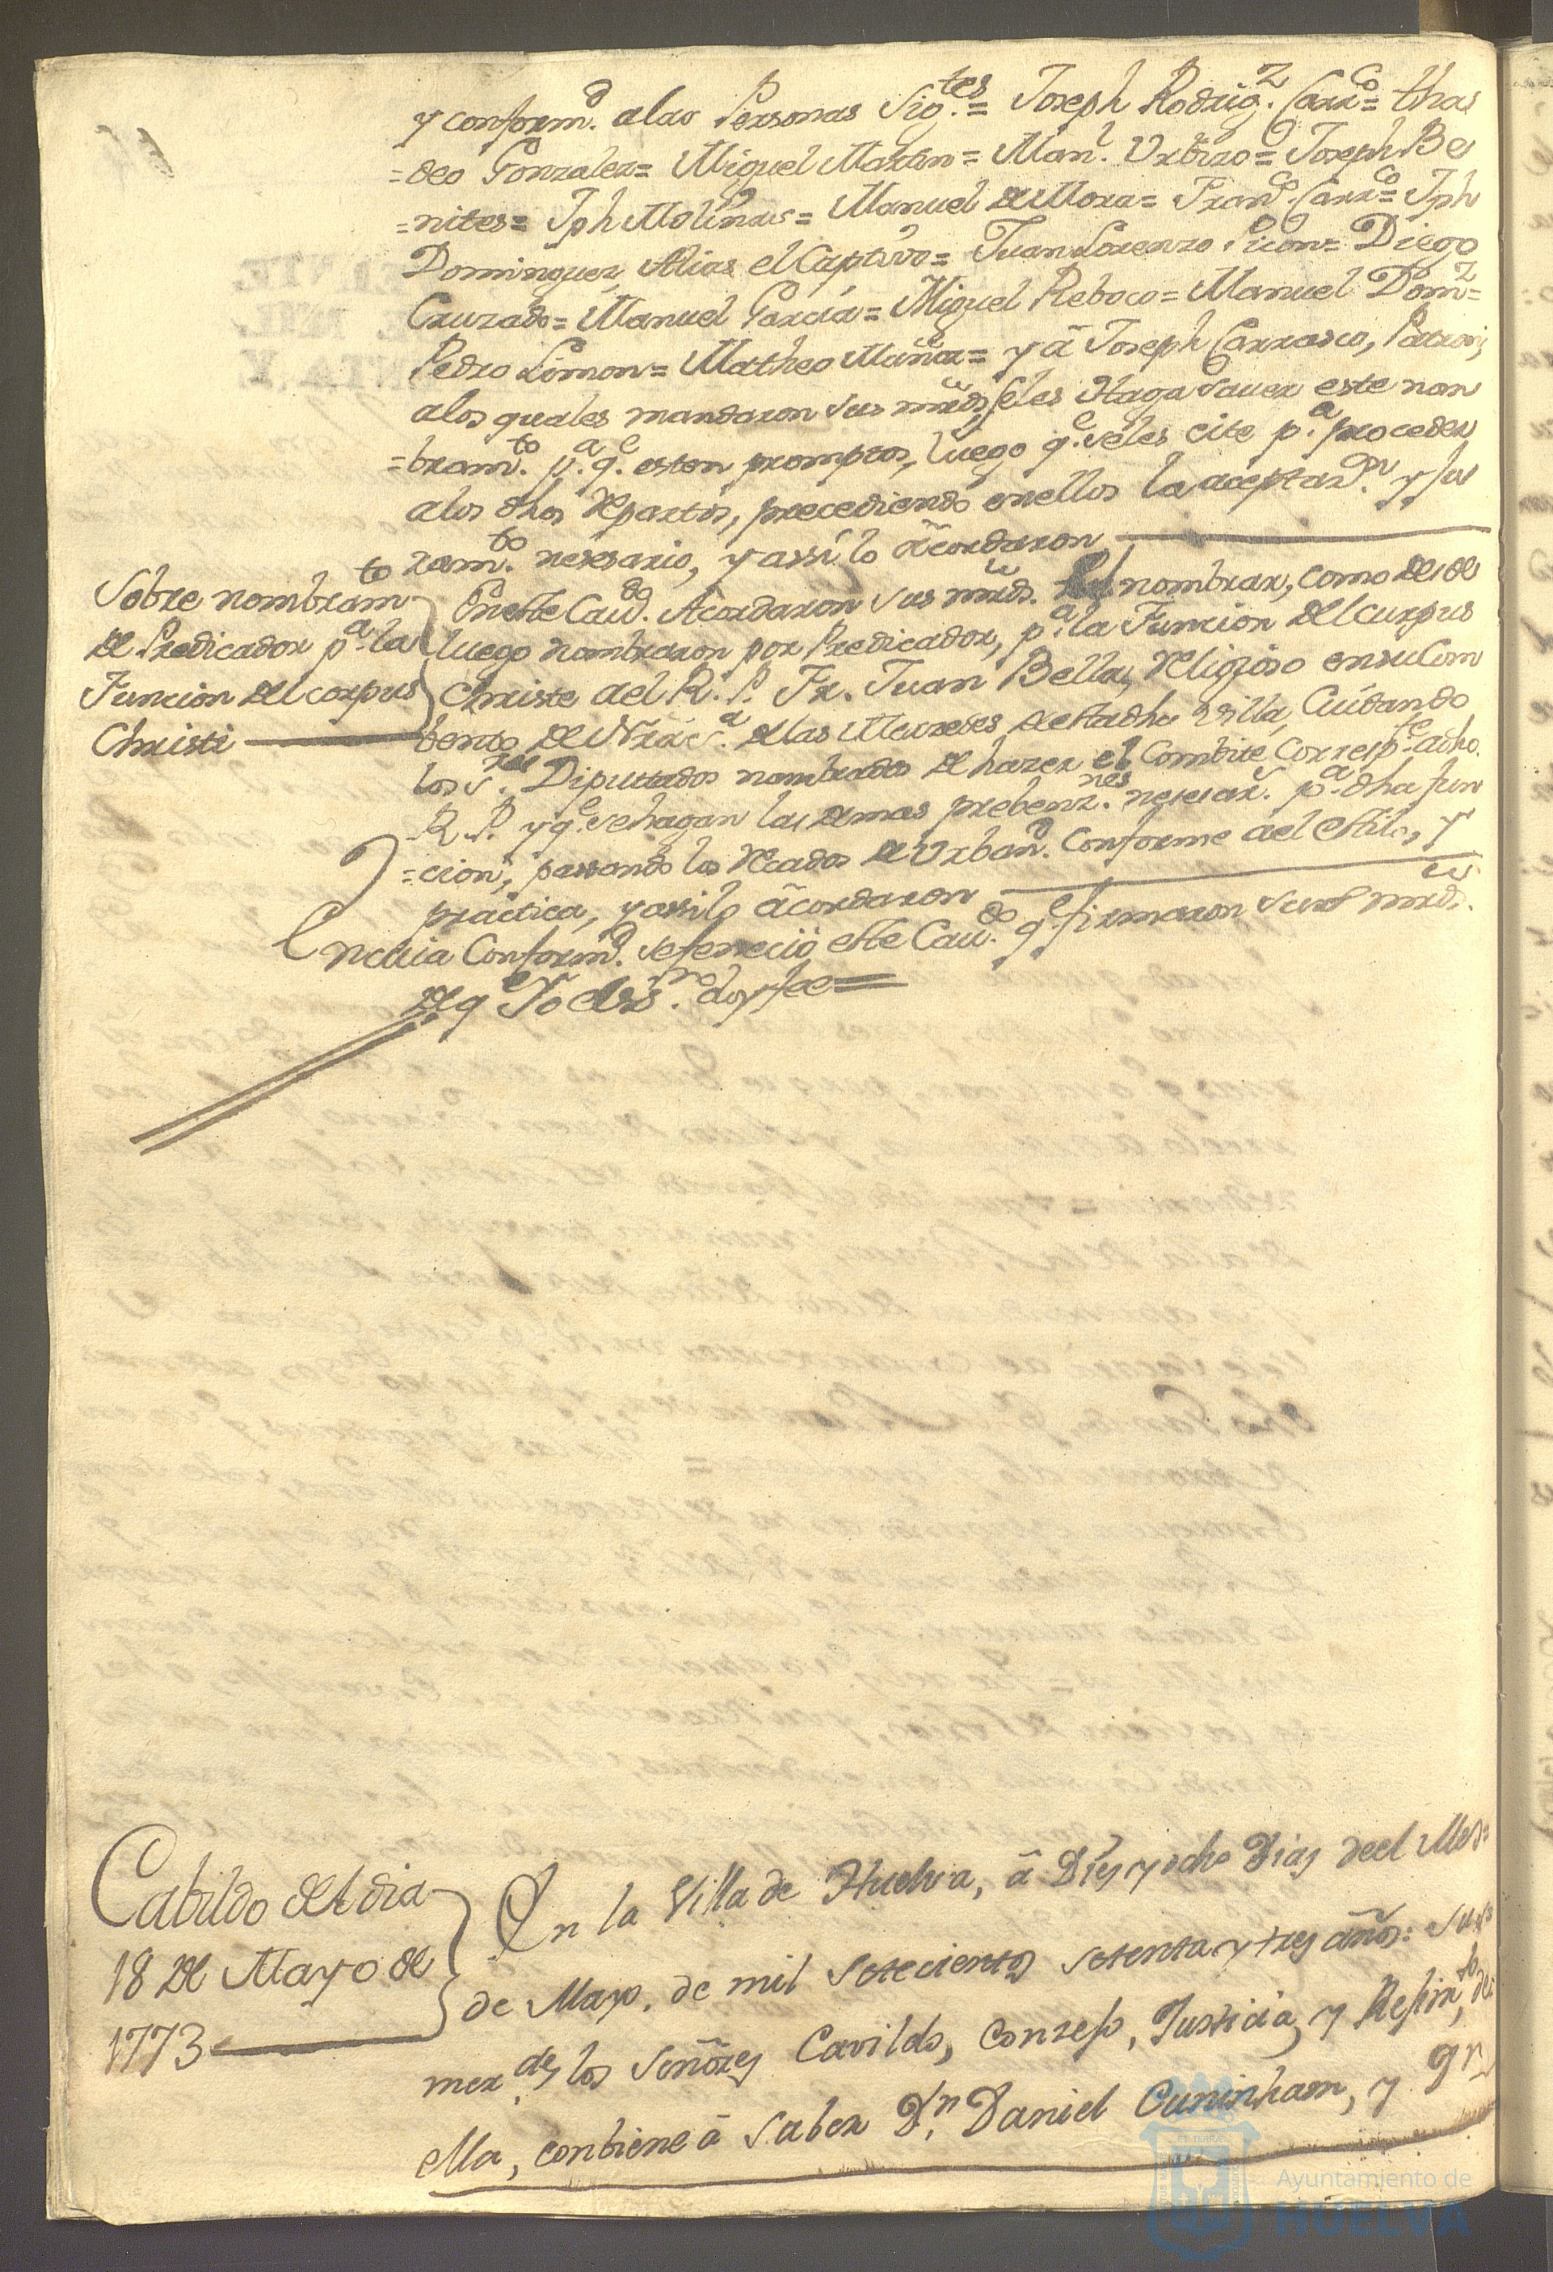 y conform.d alas Personas Sig.tes = Joseph Rodrig.z Carr.co = thas
=deo Gonzalez = Miguel Martin = Man.l Urbizo = Joseph Be
=nites = Jph Molinas = Manuel de Mora = Fran.co Carr.co = Jph
Dominguez, Alias el Captivo = Juan Lorenzo Picon = Diego
Cruzado = Manuel Garcia = Miguel Reboco = Manuel Dom.z =
Pedro Limon = Matheo Muñoz = y â Joseph Carrasco, Patron;
alos quales mandaron sus mrds, seles Haga saver este nom
=bram.to p.a q.e esten promptos, luego q.e seles cite p.a proceder
alos dhos Repartos, precediendo enellos la aceptaz.n y Ju
ram.to nesesario, y assi lo âcordaron
Sobre nombram.to
de Predicador p.a la
Funcion del corpus
Christi
En este Cav.do Acordaron sus mrds. nombrar, como desde
luego nombraron por Predicador, p.a la Funcion del Curpus
Christe al R. P. Fr. Juan Bella, Religioso en su Com
bento de Nra S.a de las Mersedes de esta dha Villa, Cuidando
los S.res Diputtados nombrados de hazer el Combite Corresp.te a dho
R. P. y q.e se hagan las demas prebenz.nes nesesar.s p.a dha fun
=cion, passando los Recados de Urban.d Conforme al estilo, y
práctica, y assi lo âcordaron
En cuia Conform.d se fenecio este Cav.do q.e firmaron sus mrds.
de q.e Yo el es.no doy fee =
Cabildo del dia
18 de Mayo de
1773
En la Villa de Huelva, â Diez y ocho Dias deel Mes
de Mayo, de mil setecientos setenta y tres años: sus
mer.des los Señores Cavildo, Conzejo, Justicia, y Regim.to de
ella, combiene â saber D.n Daniel Cuninham, y
Ayuntamiento de
HUELVA